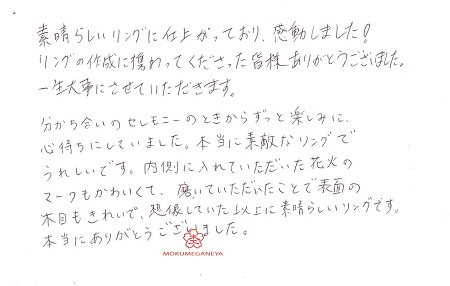 素晴らしいリングに仕上がっており、感動しました!
リングの作成に携わってくださった皆様ありがとうございました。
一生大事にさせていただきます。
分かち合いのセレモニーのときからずっと楽しみに、
心待ちにしていました。本当に素敵なリングで
うれしいです。内側に入れていただいた花火の
マークもかわいくて、磨いていただいたことで表面の
木目もきれいで、想像していた以上に素晴らしいリングです。
本当にありがとうございました。
MOKUMEGANEYA